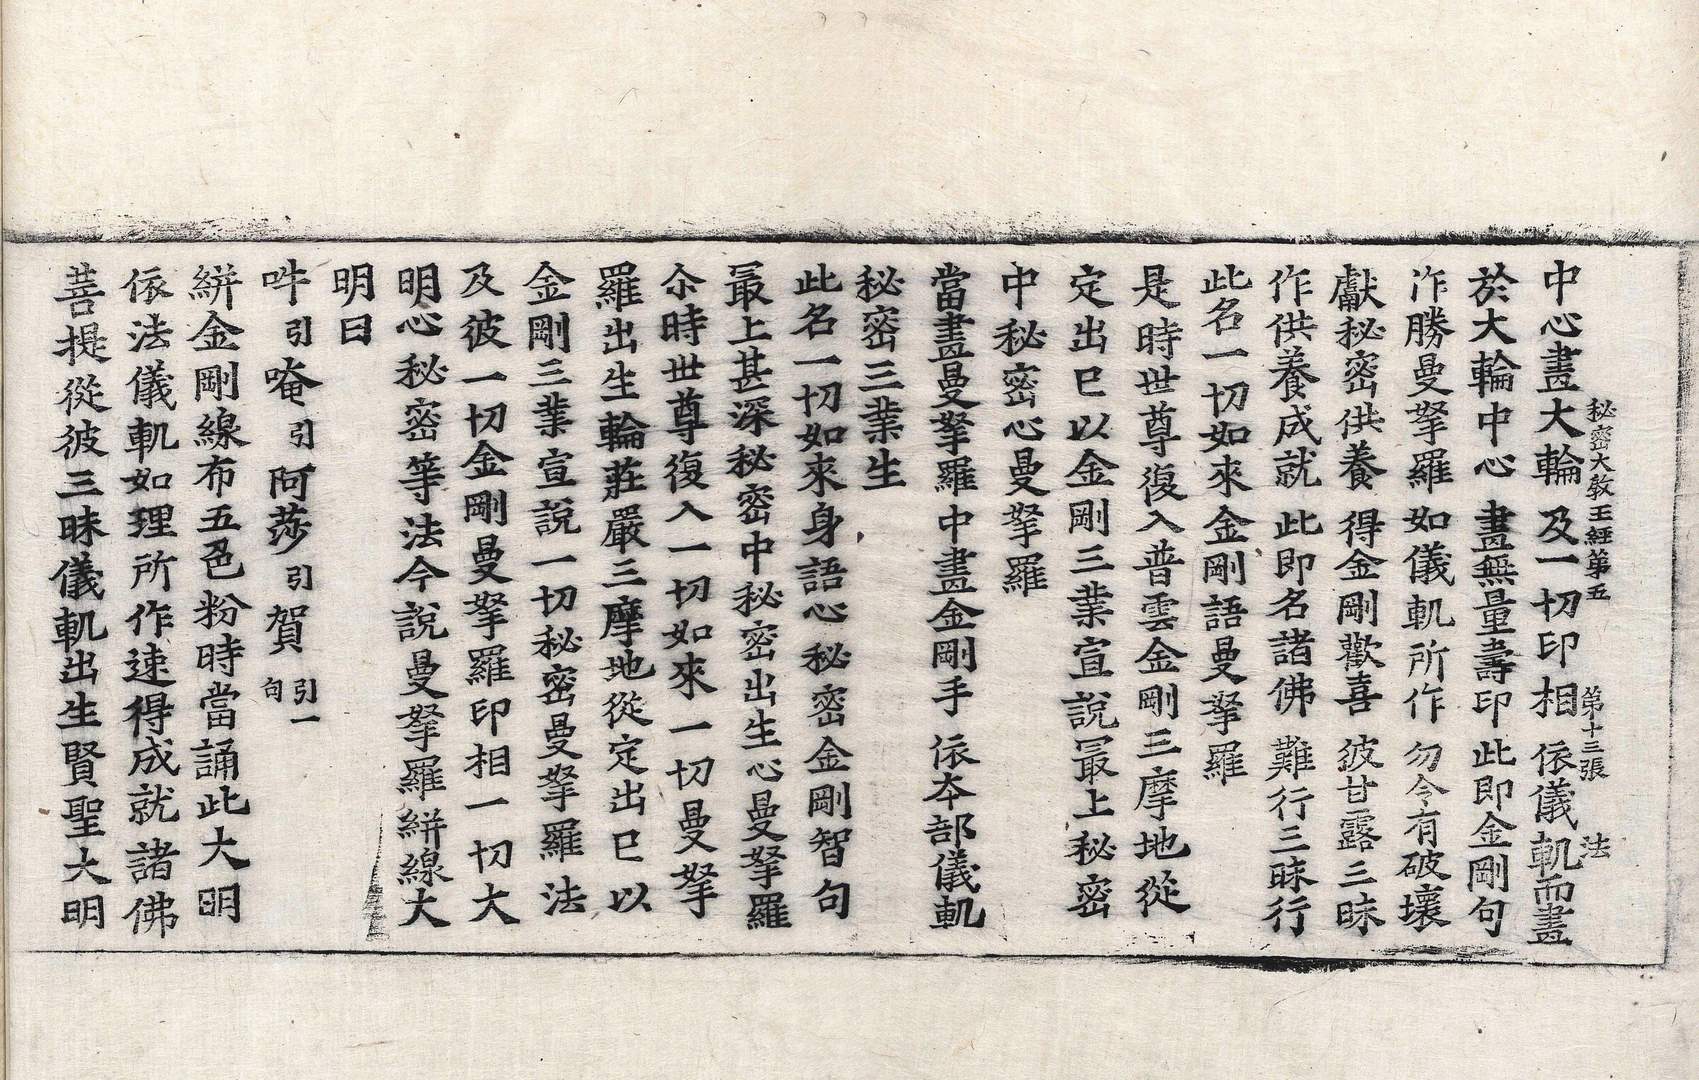 中心畫大輪及一切印相 依儀軌而畫
秘密大教王經第五 第十三張 法
於大輪中心 畫無量壽印 此即金剛句
作勝曼拏羅 如儀軌所作 勿令有破壞
獻秘密供養 得金剛歡喜 彼甘露三昧
作供養成就 此即名諸佛 難行三昧行
此名一切如來金剛語曼拏羅
是時世尊復入普雲金剛三摩地從
定出已以金剛三業宣說最上秘密
中秘密心曼拏羅
當畫曼拏羅中畫金剛手 依本部儀軌
秘密三業生
此名一切如來身語心秘密金剛智句
最上甚深秘密中秘密出生心曼拏羅
尒時世尊復入一切如來一切曼拏
羅出生輪莊嚴三摩地從定出已以
金剛三業宣說一切秘密曼拏羅法
及彼一切金剛曼拏羅印相一切大
明心秘密等法今說曼拏羅絣線大
明曰
吽引唵引阿莎引賀引一句
絣金剛線布五色粉時當誦此大明
依法儀軌如理所作速得成就諸佛
菩提從彼三昧儀軌出生賢聖大明